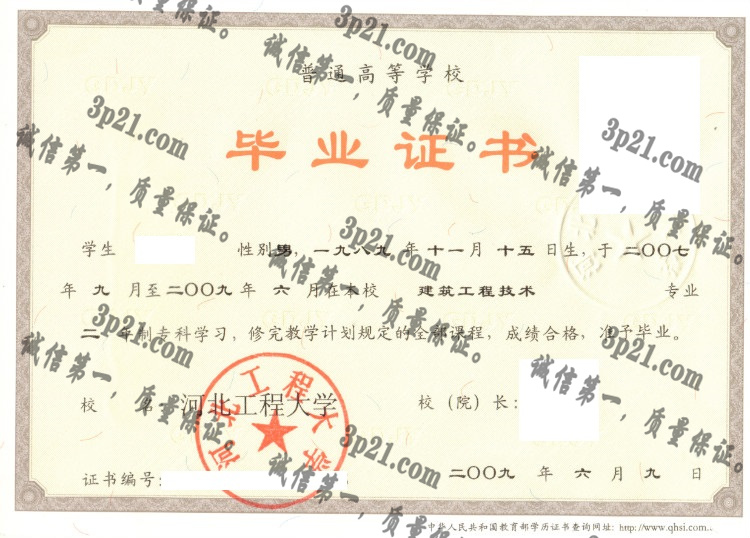 普通高等学校
毕业证书
学生 性别男，一九八九年十一月十五日生，于二〇〇七
年九月至二〇〇九年六月在本校 建筑工程技术 专业
二年制专科学习，修完教学计划规定的全部课程，成绩合格，准予毕业。
校 名：河北工程大学 校（院）长：
河北工程大学
证书编号：
二〇〇九年六月九日
中华人民共和国教育部学历证书查询网址：http://www.qhsi.com.
3p21.com
诚信第一，质量保证。
3p21.com
诚信第一，质量保证。
3p21.com
诚信第一，质量保证。
3p21.com
诚信第一，质量保证。
3p21.com
诚信第一，质量保证。
3p21.com
诚信第一，质量保证。
3p21.com
诚信第一，质量保证。